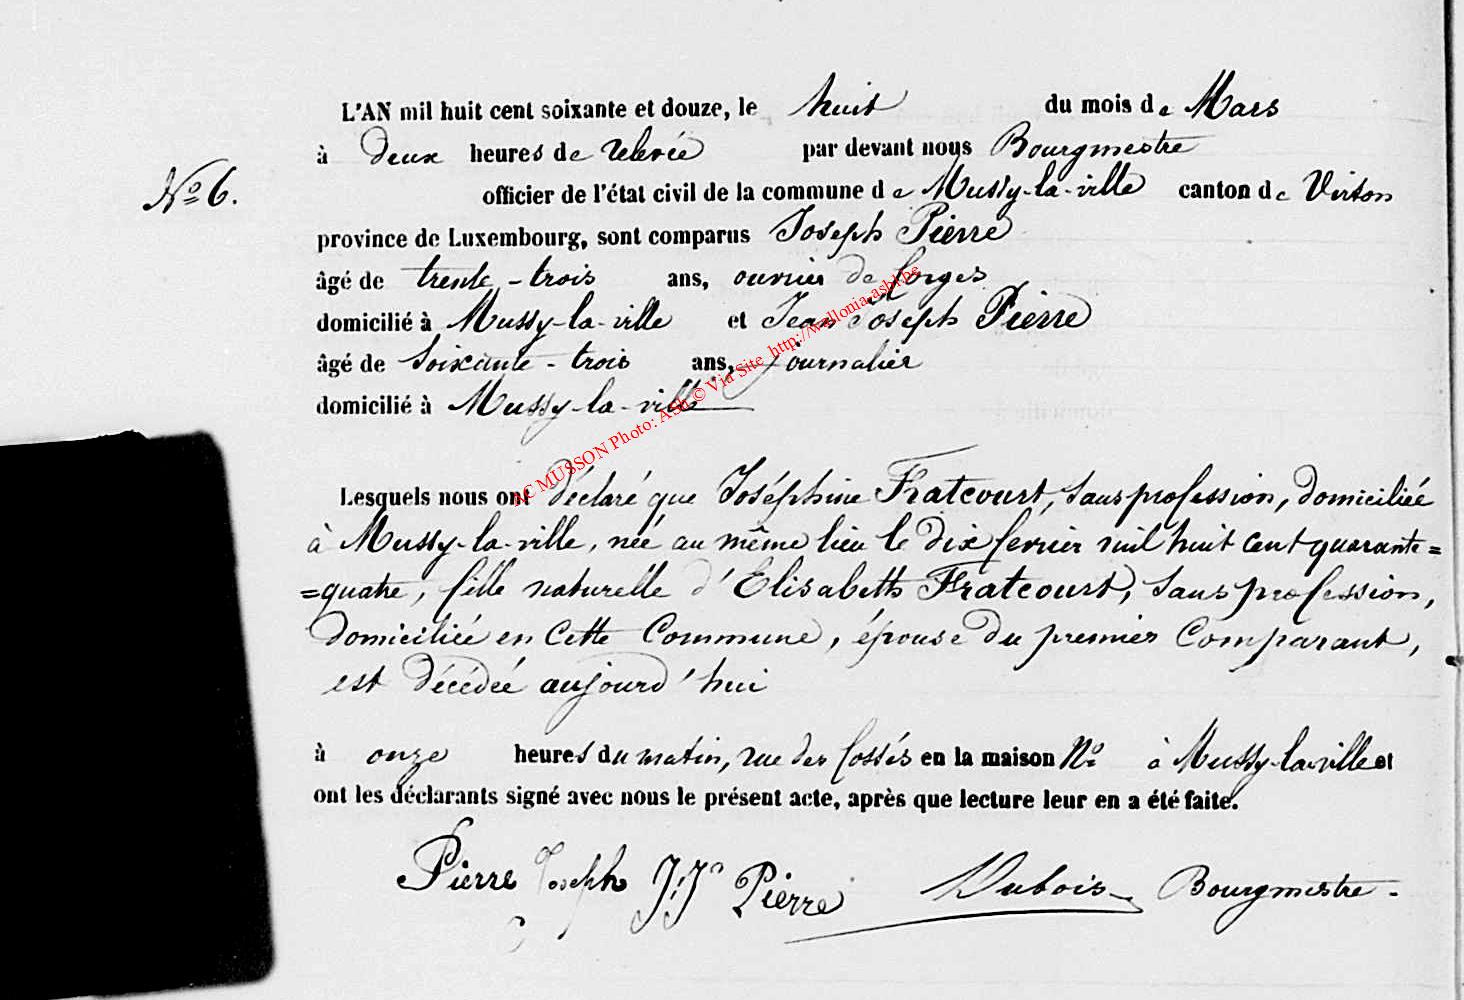 L'AN mil huit cent soixante et douze, le huit du mois de Mars
à deux heures de relevée par devant nous Bourgmestre
No 6.
officier de l'état civil de la commune de Mussy-la-ville canton de Virton
province de Luxembourg, sont comparus Joseph Pierre
âgé de trente-trois ans, ouvrier de forges
domicilié à Mussy-la-ville et Jean Joseph Pierre
âgé de soixante-trois ans, journalier
domicilié à Mussy-la-ville
AC MUSSON Photo: Asbl © Via Site http://wallonia.asbl.be
Lesquels nous ont déclaré que Joséphine Fratcourt, sans profession, domiciliée
à Mussy-la-ville, née au même lieu le dix fevrier mil huit cent quarante=
=quatre, fille naturelle d'Elisabeth Fratcourt, sans profession,
domiciliée en cette Commune, épouse du premier Comparant,
est décédée aujourd'hui
à onze heures du matin, rue des fossés en la maison No à Mussy-la-ville et
ont les déclarants signé avec nous le présent acte, après que lecture leur en a été faite.
Pierre Joseph J. Jh Pierre Dubois Bourgmestre.